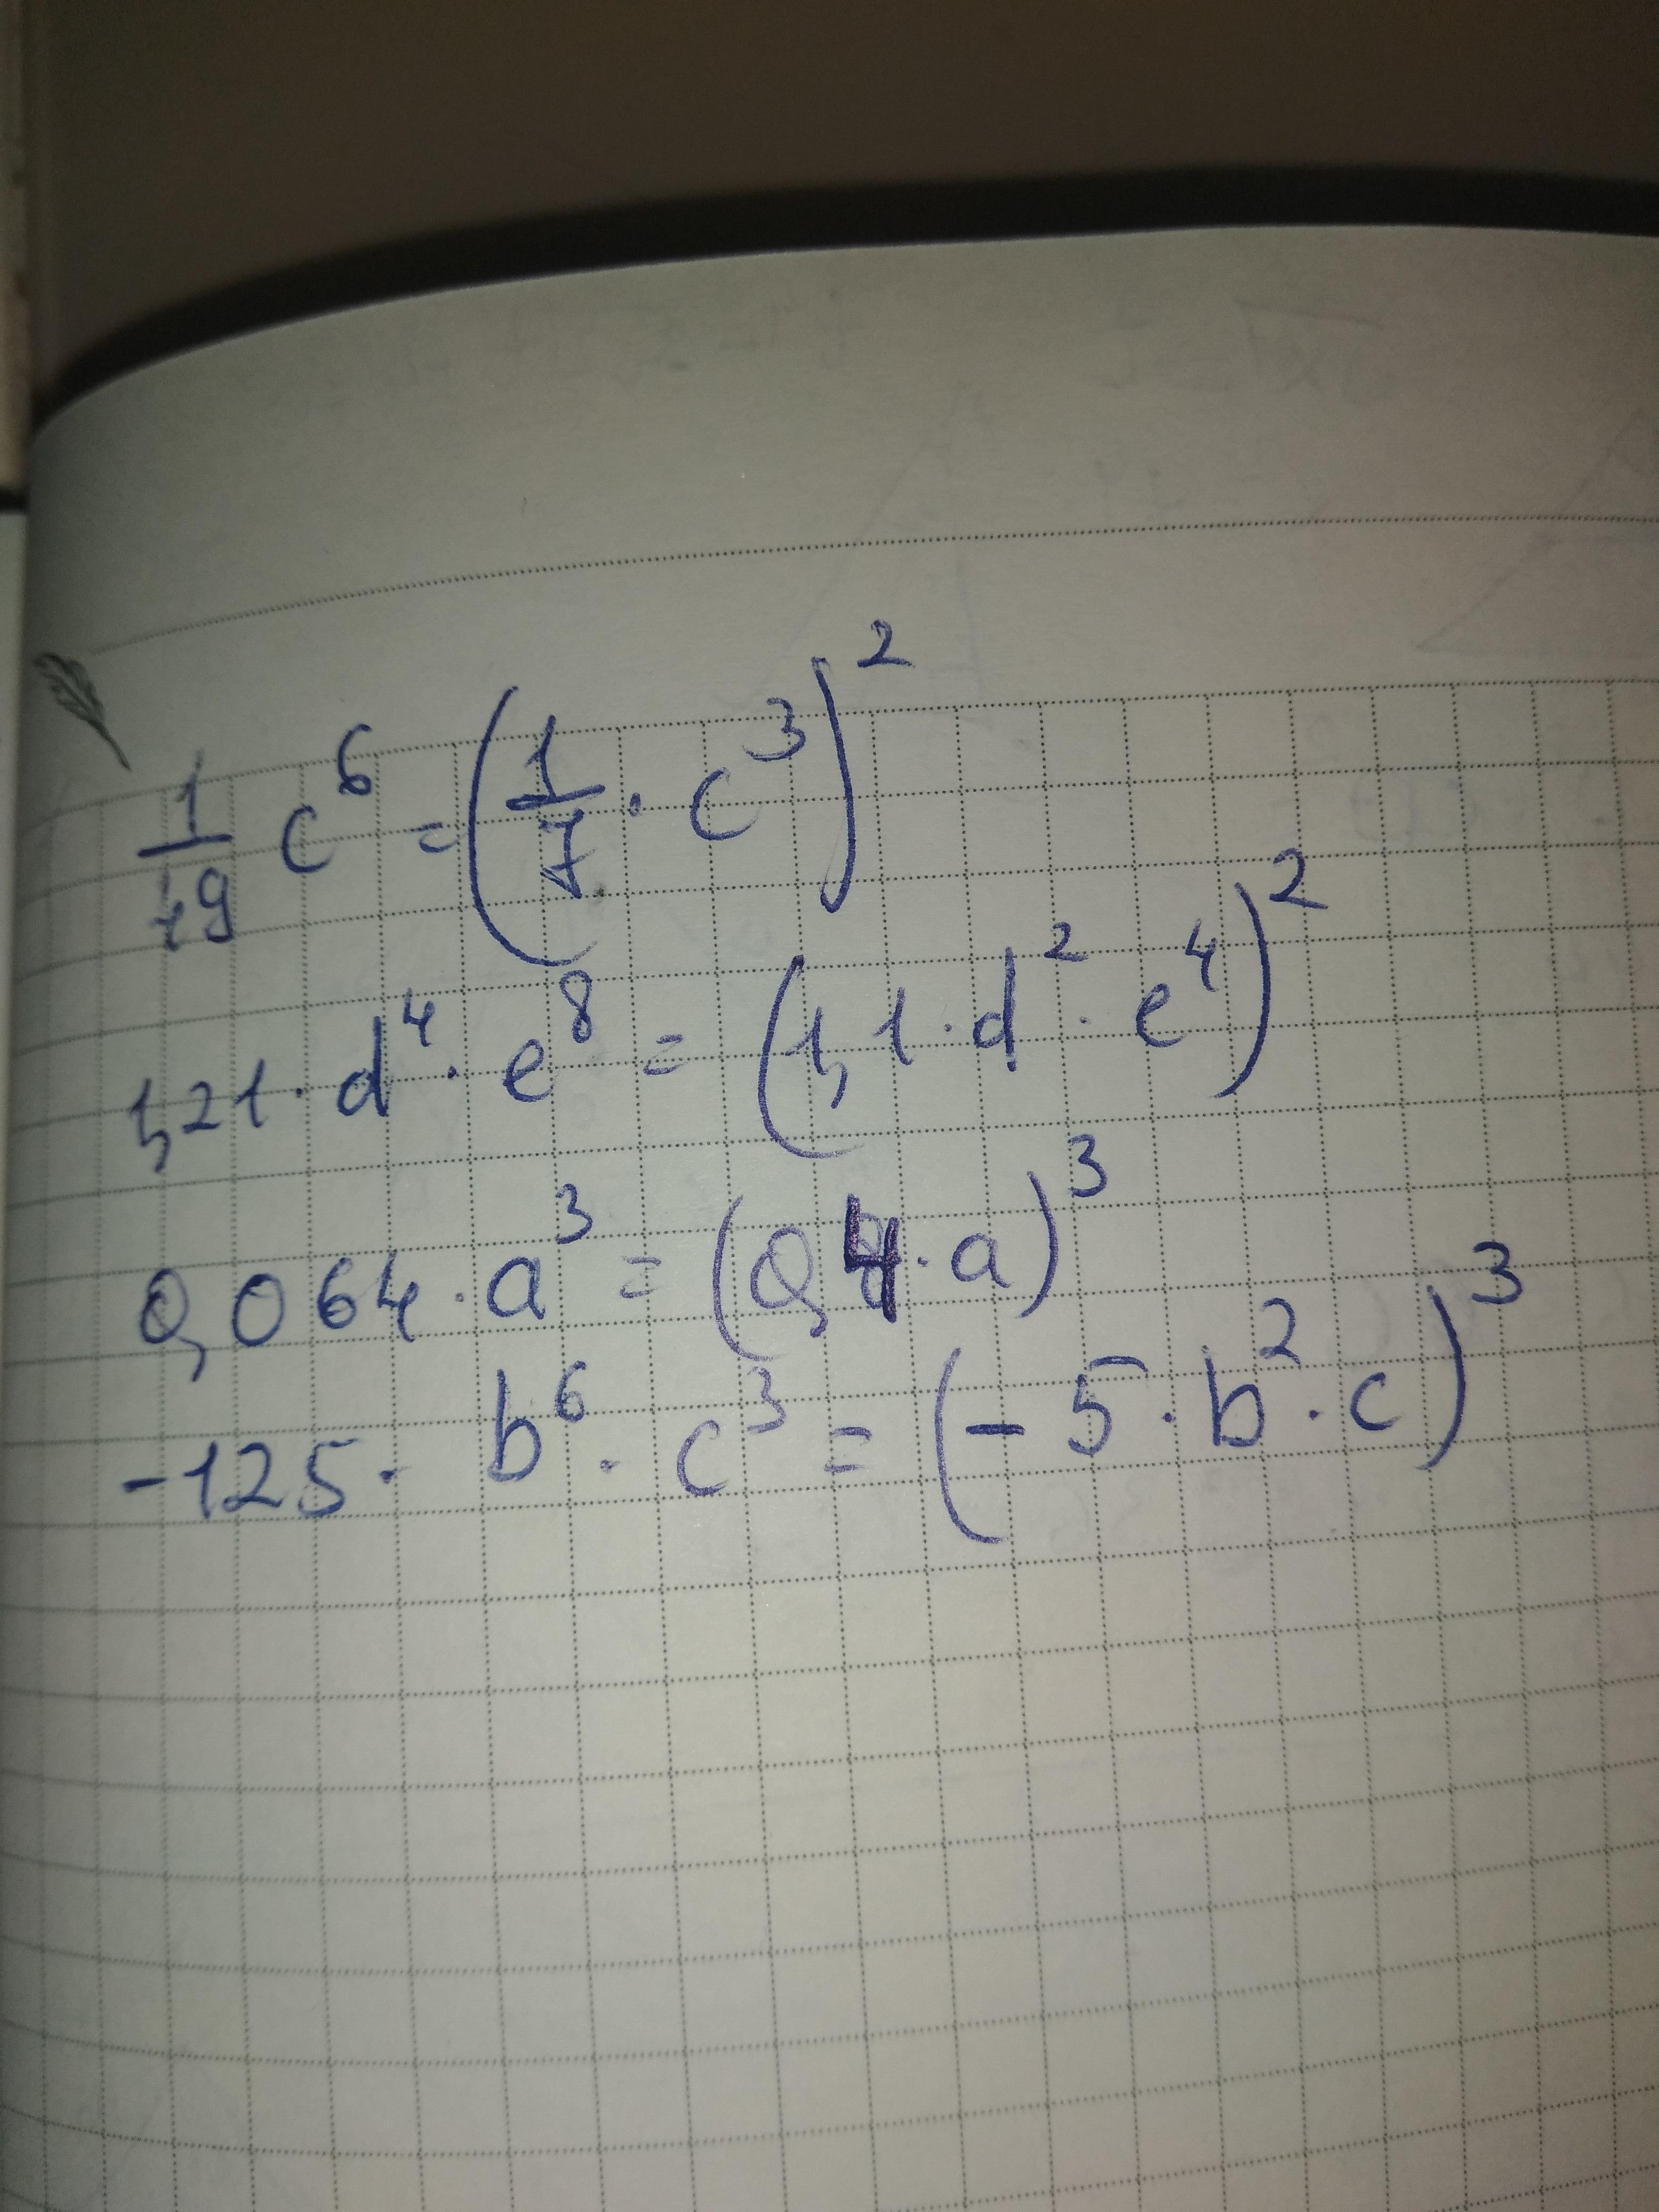 1/49 c⁶ = (1/7 · c³)²
1,21 · d⁴ · e⁸ = (1,1 · d² · e⁴)²
0,064 · a³ = (0,4 · a)³
-125 · b⁶ · c³ = (-5 · b² · c)³